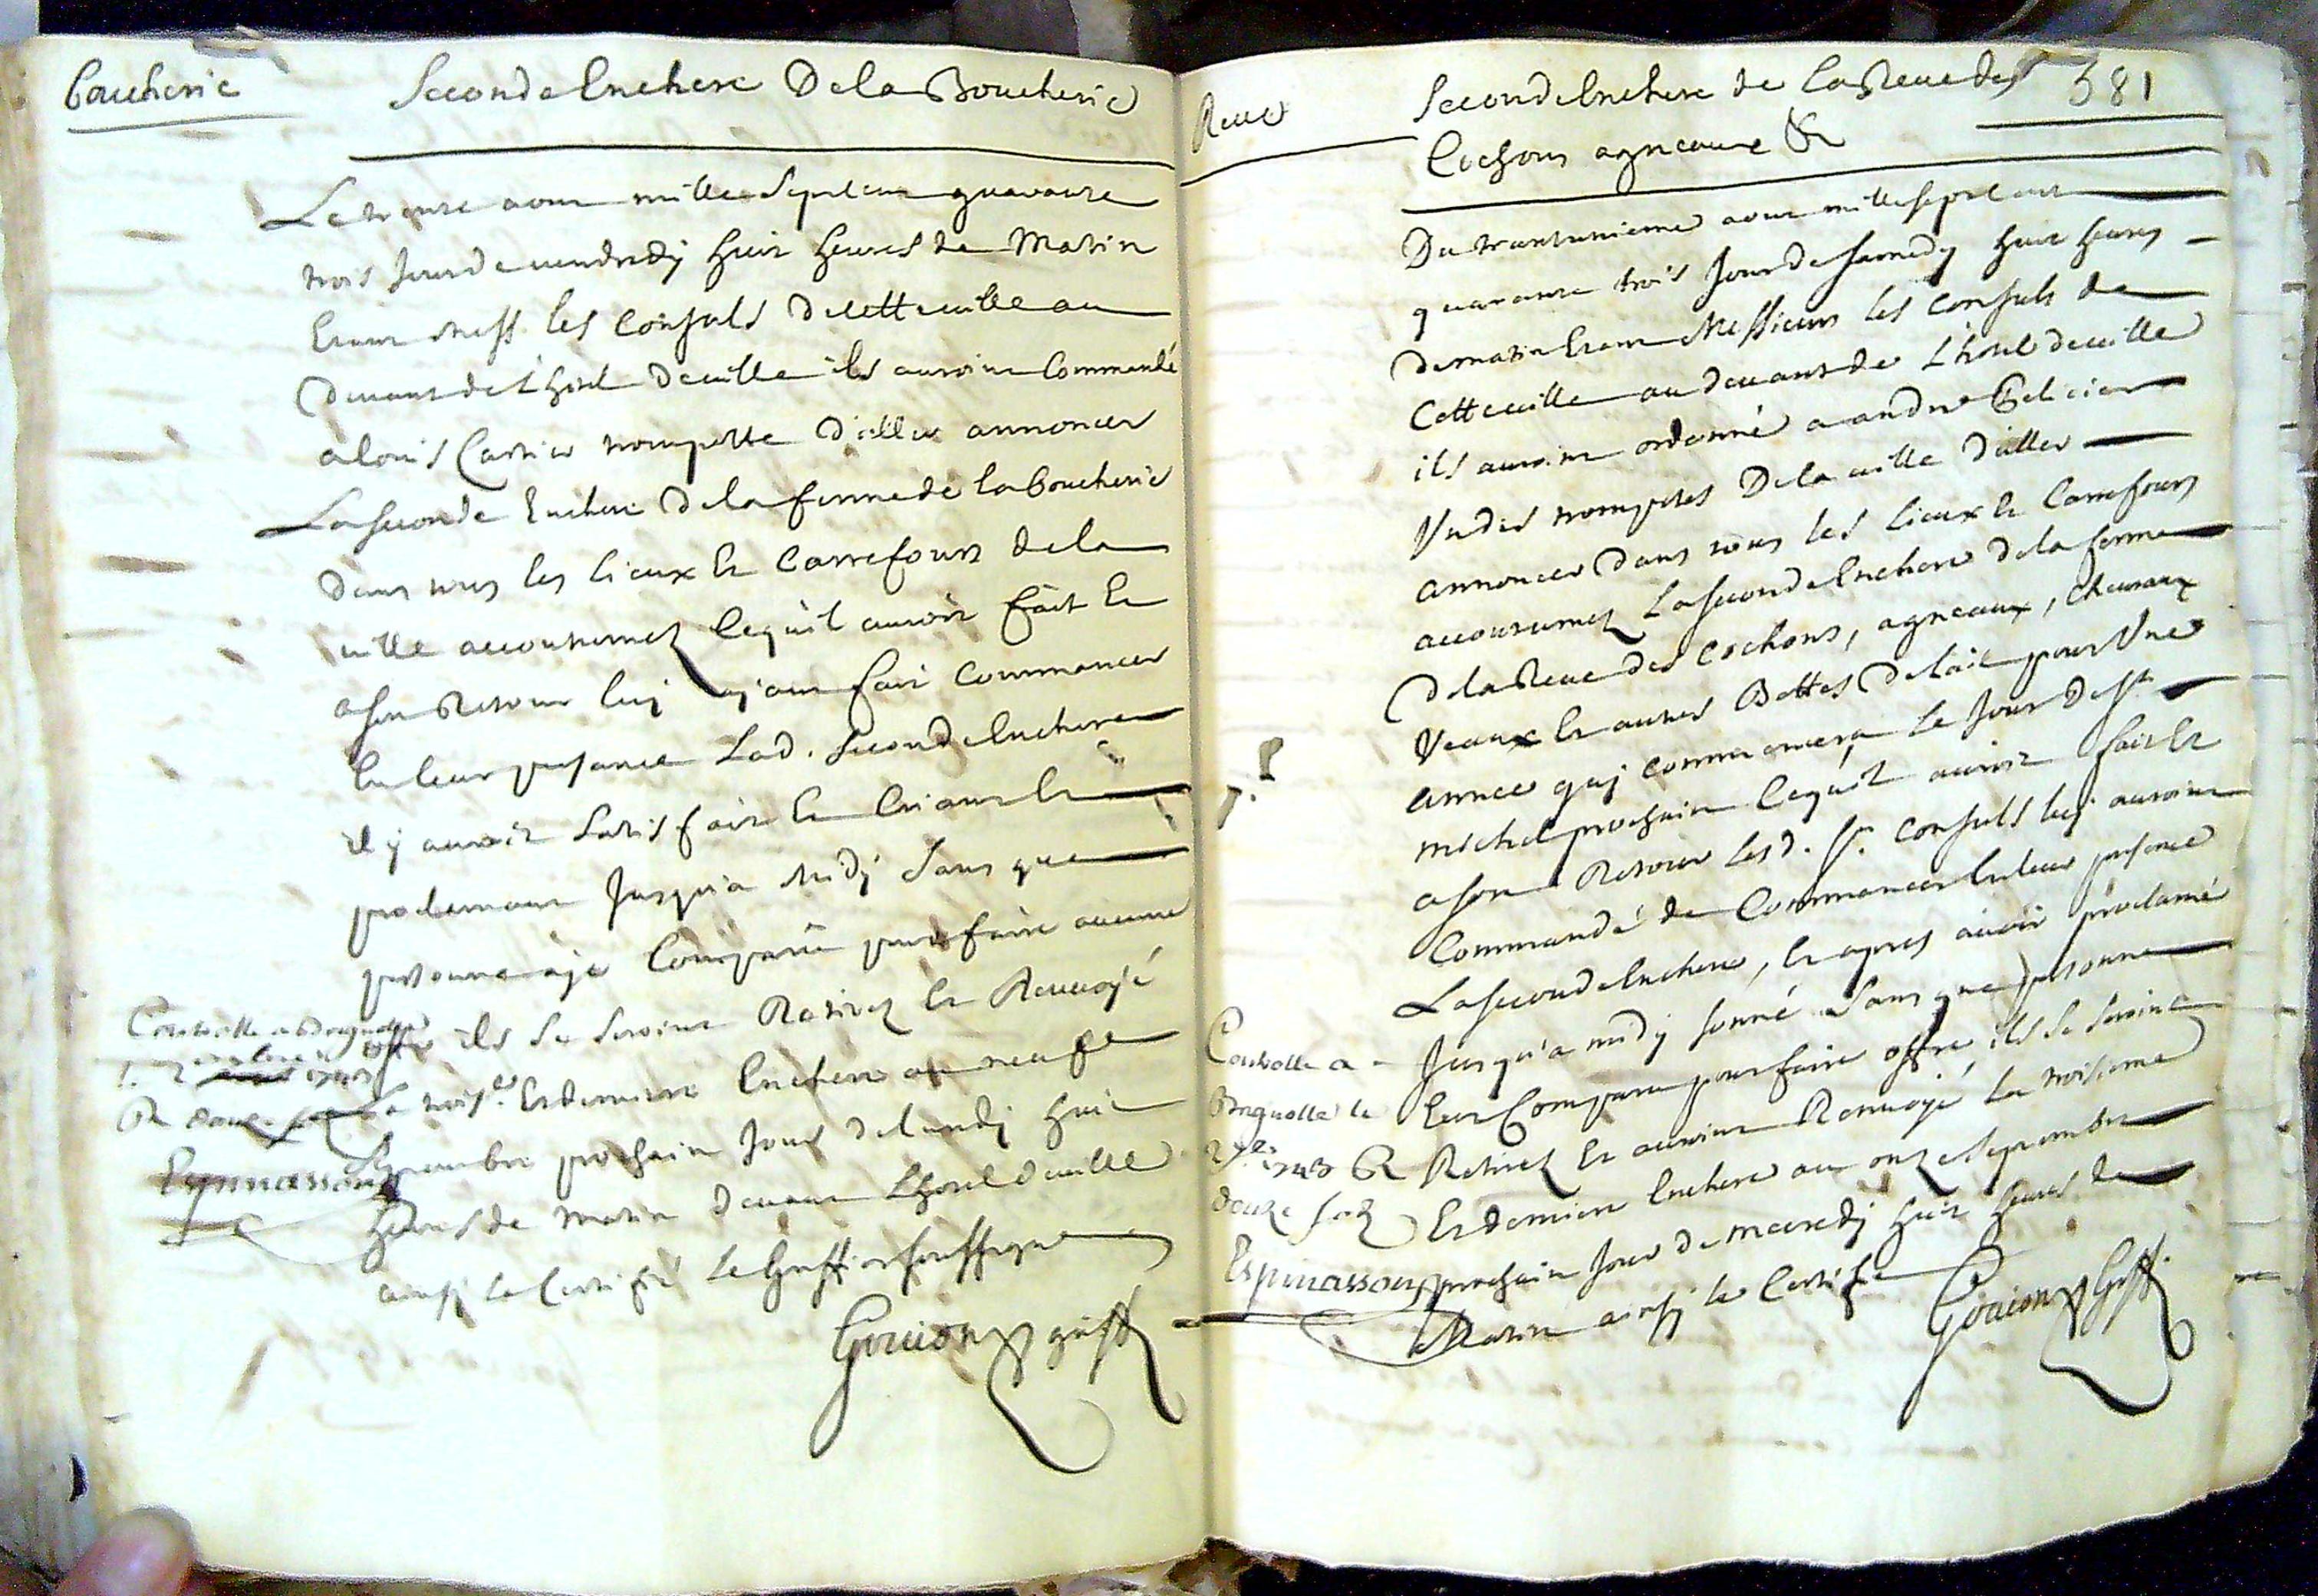 boucherie
Seconde Enchere De la Boucherie
Le trente aout mille Sept cent quarante
trois Jour de vendredy huit heures de Matin
Etant mess. les Consuls De cette ville au
Devant de L'hotel De ville ils auroint Commandé
a louis Cartier trompette D'aller annoncer
La seconde Enchere De la ferme de la boucherie
Dans tous les lieux Et Carrefours de la
ville accoutumez Ce qu'il auroit fait Et
a son Retour luy ayant fait Commancer
En leur presance Lad. seconde Enchere
il y auroit Satisfait Et Criant Et
proclamant Jusqu'a Midy Sans que
personne aye Comparu pour faire aucune
offre ils Se Seroint Retirez Et Renvoyé
La trois.e Et derniere Enchere au neuf
Septembre prochain Jour de lundy huit
heures de Matin Devant L'hotel de ville
ainsy Le Certifié Le Greffier soussigné
Gouion greff
Controlle a Brignolle
R douze
Espinasson
Reve
Seconde Enchere de La Reve des 581
Cochons agneaux &
Du trente unieme aout mille sept cent
quarante trois Jour de samedy huit heures
de matin Etant Messieurs les Consuls de
Cette ville au devant de L'hotel de ville
ils auroint ordonné a andre Pelicier
Un des trompetes De la ville D'aller
annoncer Dans tous les lieux Et Carrefours
accoutumez La seconde Enchere de la ferme
De la Reve des Cochons, agneaux, Chevraux
Veaux Et autres Bettes De lait pour Une
année quy commancera Le Jour de St
michel prochain Ce qu'il auroit fait Et
a son Retour Les d. Srs. Consuls luy auroint
Commandé de Commancer En leur presence
La seconde Enchere, Et apres avoir proclamé
Jusqu'a midy sonné Sans que personne
Eut Comparu pour faire offre, ils Se Seroint
Retirez Et auroint Renvoyé La troisieme
Et derniere Enchere au onze Septembre
prochain Jour de mercredy huit heures de
Matin ainsy Le Certifie
Gouion Greff.
Controlle a
Brignolle le
2 7bre 1743 R
douze sols
Espinasson